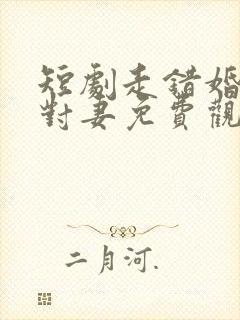 短劇走錯婚
對妻免費觀
二月河.